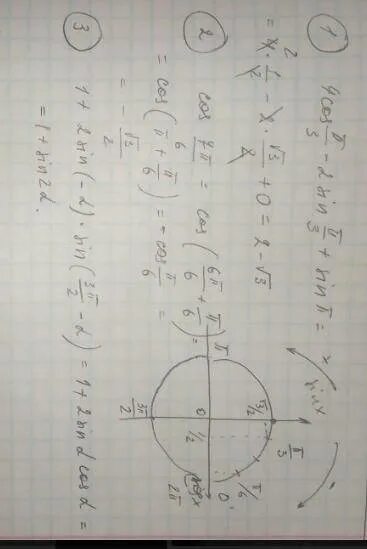 ①
4cos π/3 - 2sin π/3 + sin π =
= 4 · 1/2 - 2 · √3/2 + 0 = 2 - √3
②
cos 7π/6 = cos (6π/6 + π/6) =
= cos (π + π/6) = - cos π/6 =
= - √3/2
③
1 + 2 sin(-α) · sin(3π/2 - α) = 1 + 2 sin α cos α =
= 1 + sin 2α.
sin x
π/3
√3/2
π/6
π
0
1/2
0
2π
cos x
3π/2